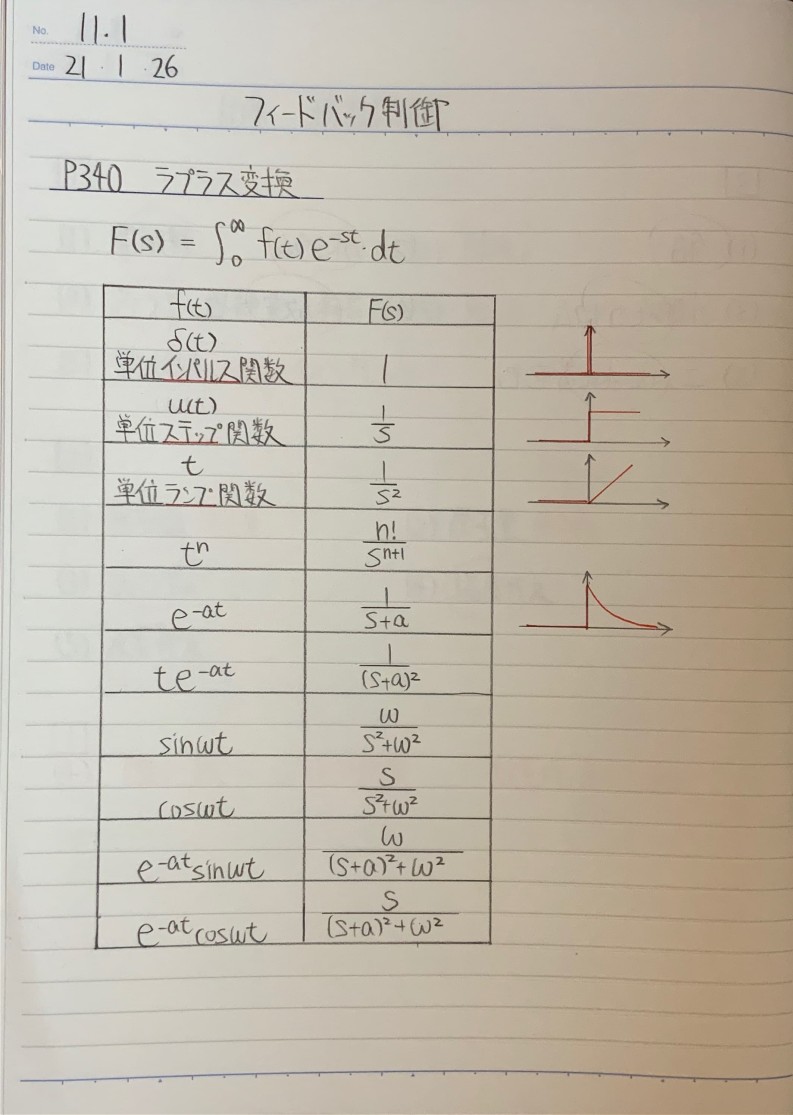 No. 11.1
Date 21・1・26
フィードバック制御
P340 ラプラス変換
F(s) = ∫₀^∞ f(t)e^{-st}・dt
f(t) F(s)
δ(t)
単位インパルス関数 1
u(t)
単位ステップ関数 1/s
t
単位ランプ関数 1/s²
tⁿ n!/s^{n+1}
e^{-at} 1/(s+a)
te^{-at} 1/(s+a)²
sinωt ω/(s²+ω²)
cosωt s/(s²+ω²)
e^{-at}sinωt ω/((s+a)²+ω²)
e^{-at}cosωt s/((s+a)²+ω²)